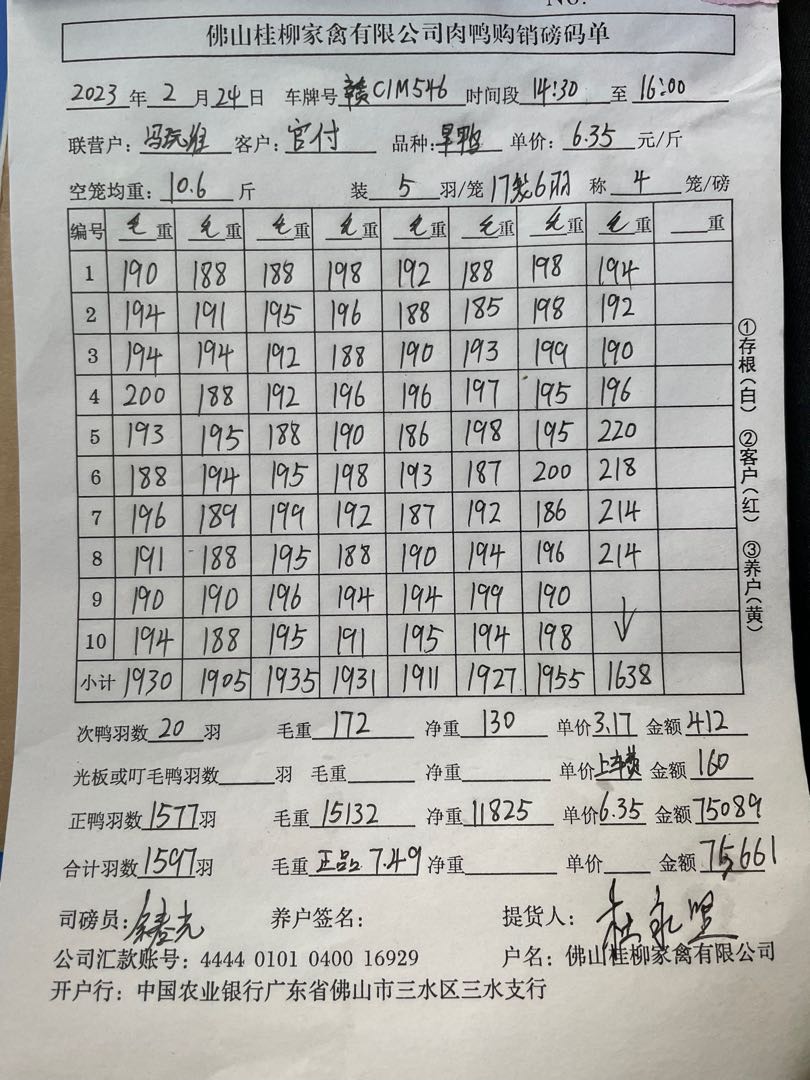 No:
佛山桂柳家禽有限公司肉鸭购销磅码单
2023 年 2 月 24 日 车牌号 赣C1M546 时间段 14:30 至 16:00
联营户: 冯 客户: 官付 品种: 旱鸭 单价: 6.35 元/斤
空笼均重: 10.6 斤 装 5 羽/笼 17装6羽 称 4 笼/磅
编号 毛重 毛重 毛重 毛重 毛重 毛重 毛重 毛重 重
1 190 188 188 198 192 188 198 194
2 194 191 195 196 188 185 198 192
3 194 194 192 188 190 193 199 190
4 200 188 192 196 196 197 195 196
5 193 195 188 190 186 198 195 220
6 188 194 195 198 193 187 200 218
7 196 189 199 192 187 192 186 214
8 191 188 195 188 190 194 196 214
9 190 190 196 194 194 199 190
10 194 188 195 191 195 194 198
小计 1930 1905 1935 1931 1911 1927 1955 1638
次鸭羽数 20 羽 毛重 172 净重 130 单价 3.17 金额 412
光板或叮毛鸭羽数 羽 毛重 净重 单价 上车费 金额 160
正鸭羽数 1577 羽 毛重 15132 净重 11825 单价 6.35 金额 75089
合计羽数 1597 羽 毛重 正品 7.49 净重 单价 金额 75,661
司磅员: 养户签名: 提货人: 杜永坚
公司汇款账号: 4444 0101 0400 16929 户名: 佛山桂柳家禽有限公司
开户行: 中国农业银行广东省佛山市三水区三水支行
①存根(白) ②客户(红) ③养户(黄)